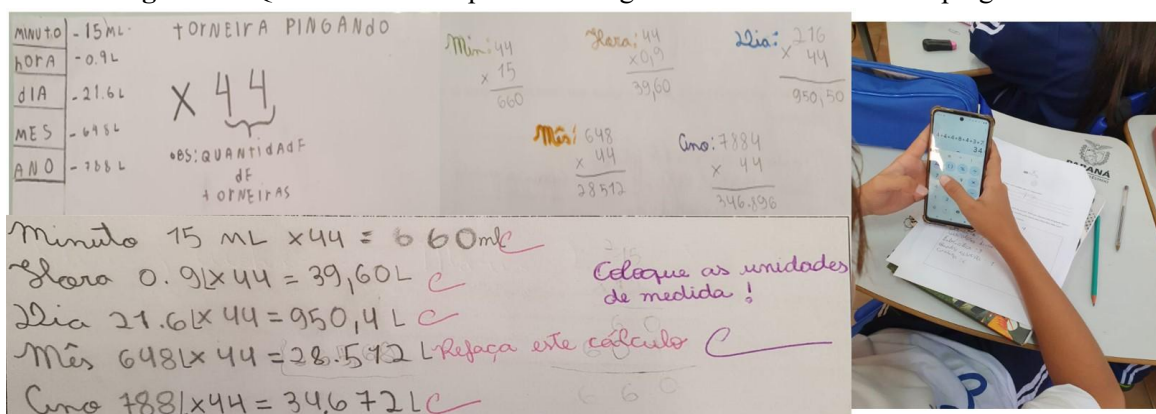 MINUTO - 15ML.
HORA - 0.9L
DIA - 21.6L
MES - 648L
ANO - 788L
TORNEIRA PINGANDO
X 44
OBS: QUANTIDADE
DE
TORNEIRAS
Min: 44
x 15
660
Hora: 44
x 0,9
39,60
Dia: 216
x 44
950,50
Mês: 648
x 44
28512
Ano: 7884
x 44
346.896
Minuto 15 ML x44 = 660ml C
Hora 0.9L x 44 = 39,60L C
Dia 21.6L x 44 = 950,4 L C
Mês 648L x 44 = 28.512 L Refaça este cálculo C
Ano 788L x44 = 34,672 L C
Coloque as unidades
de medida!
PARANÁ